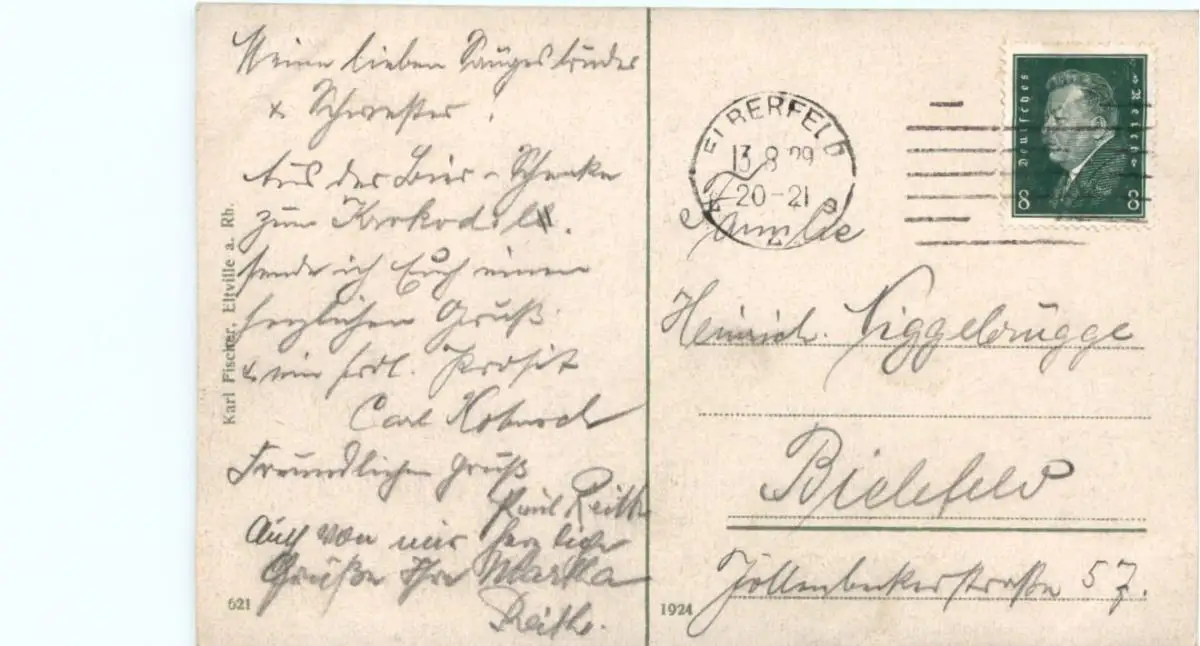 Meine lieben Sangesbrüder
& Schwester!
Aus der Bier-Schenke
zum Krokodill.
sende ich Euch einen
herzlichen Gruß
& ein frdl. Prosit
Carl
Freundlichen Gruß
Paul Reith
Auch von mir herzliche
Grüße Ihre Martha
Reith.
Karl Fischer, Eltville a. Rh.
621
1924
ELBERFELD
13 8 29
20-21
Deutsches Reich
8 8
Familie
Heinrich Niggebrügge
Bielefeld
Jöllenbeckerstraße 57.